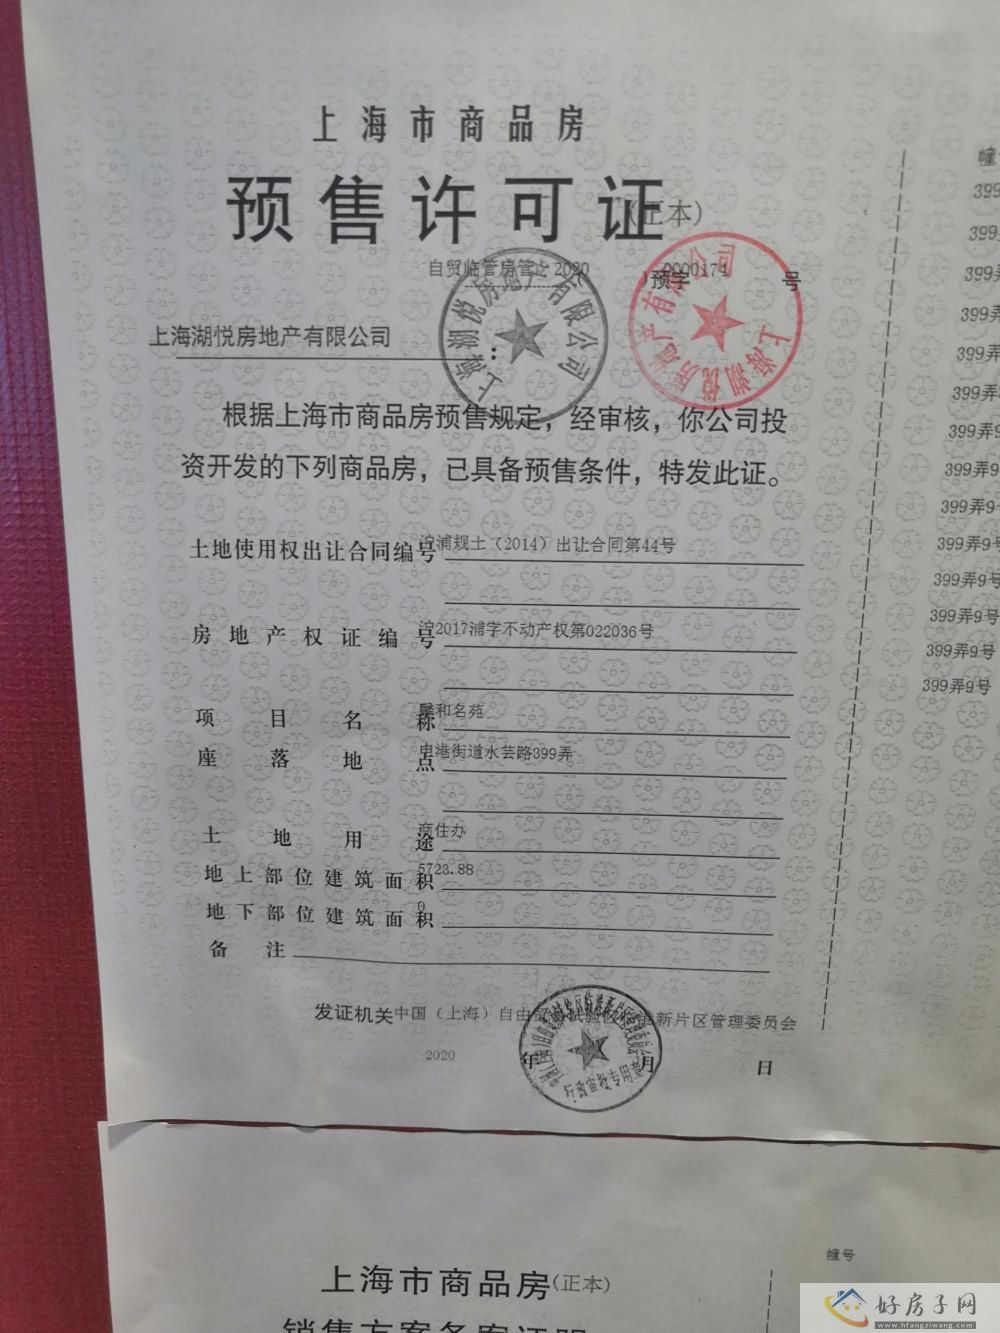 上海市商品房
预售许可证(正本)
自贸临管房管 2020 )预字 0000174 号
上海湖悦房地产有限公司 :
上海湖悦房地产有限公司
上海湖悦房地产有限公司
根据上海市商品房预售规定，经审核，你公司投
资开发的下列商品房，已具备预售条件，特发此证。
土地使用权出让合同编号 沪浦规土（2014）出让合同第44号
房地产权证编号 沪2017浦字不动产权第022036号
项目名称 馨和名苑
座落地点 申港街道水芸路399弄
土地用途 商住办
地上部位建筑面积 5723.88
地下部位建筑面积 0
备注
发证机关 中国（上海）自由贸易试验区临港新片区管理委员会
行政审批专用章
2020 年 月 日
幢号
399
399
399弄
399弄
399弄
399弄
399弄9
399弄9
399弄9号
399弄9号
399弄9号
399弄9号
399弄9号
399弄9号
上海市商品房(正本)
销售方案备案证明
幢号
好房子网
www.hfangziwang.com